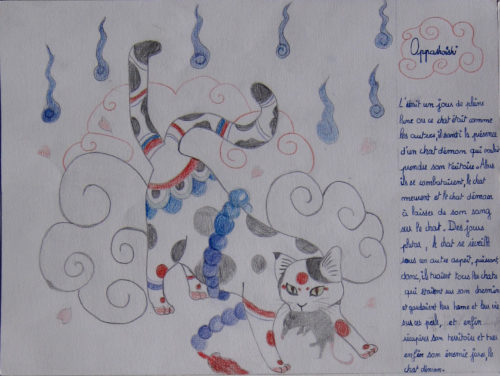 Oppashoishi
C'était un jour de pleine
lune ou ce chat était comme
les autres, il senti la présence
d'un chat démon qui voulait
prendre son téritoire. Alors
ils se combataient, le chat
meurent et le chat démon
à laisser de son sang
sur le chat. Des jours
plus tard, le chat se réveille
sous un autre aspect, puissant
donc, il tuaient tous les chats
qui étaient sur son chemin
et gardaient leur âme et leur vie
sur ces poils, et enfin
récupérer son territoire et tuer
enfin son énemie juré, le
chat démon.